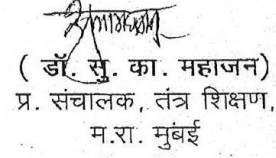 ( डॉ. सु. का. महाजन)
प्र. संचालक, तंत्र शिक्षण,
म.रा. मुंबई